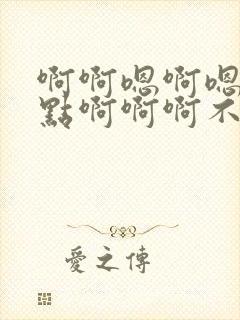 啊啊嗯啊嗯
點啊啊啊不
愛之傳